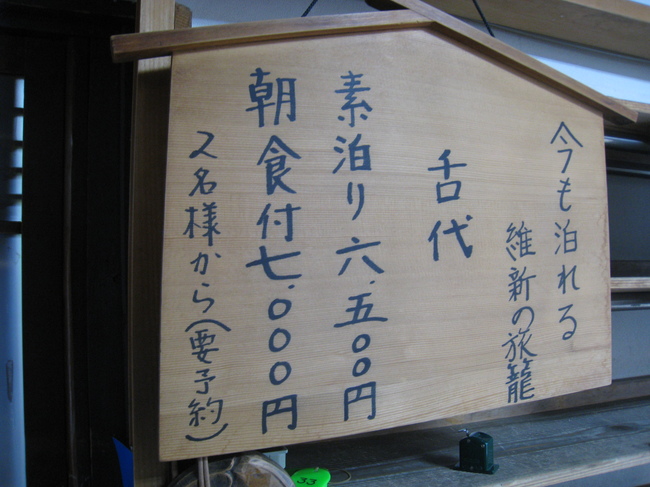 今も泊れる
維新の旅籠
舌代
素泊り六.五〇〇円
朝食付七.〇〇〇円
2名様から(要予約)
33